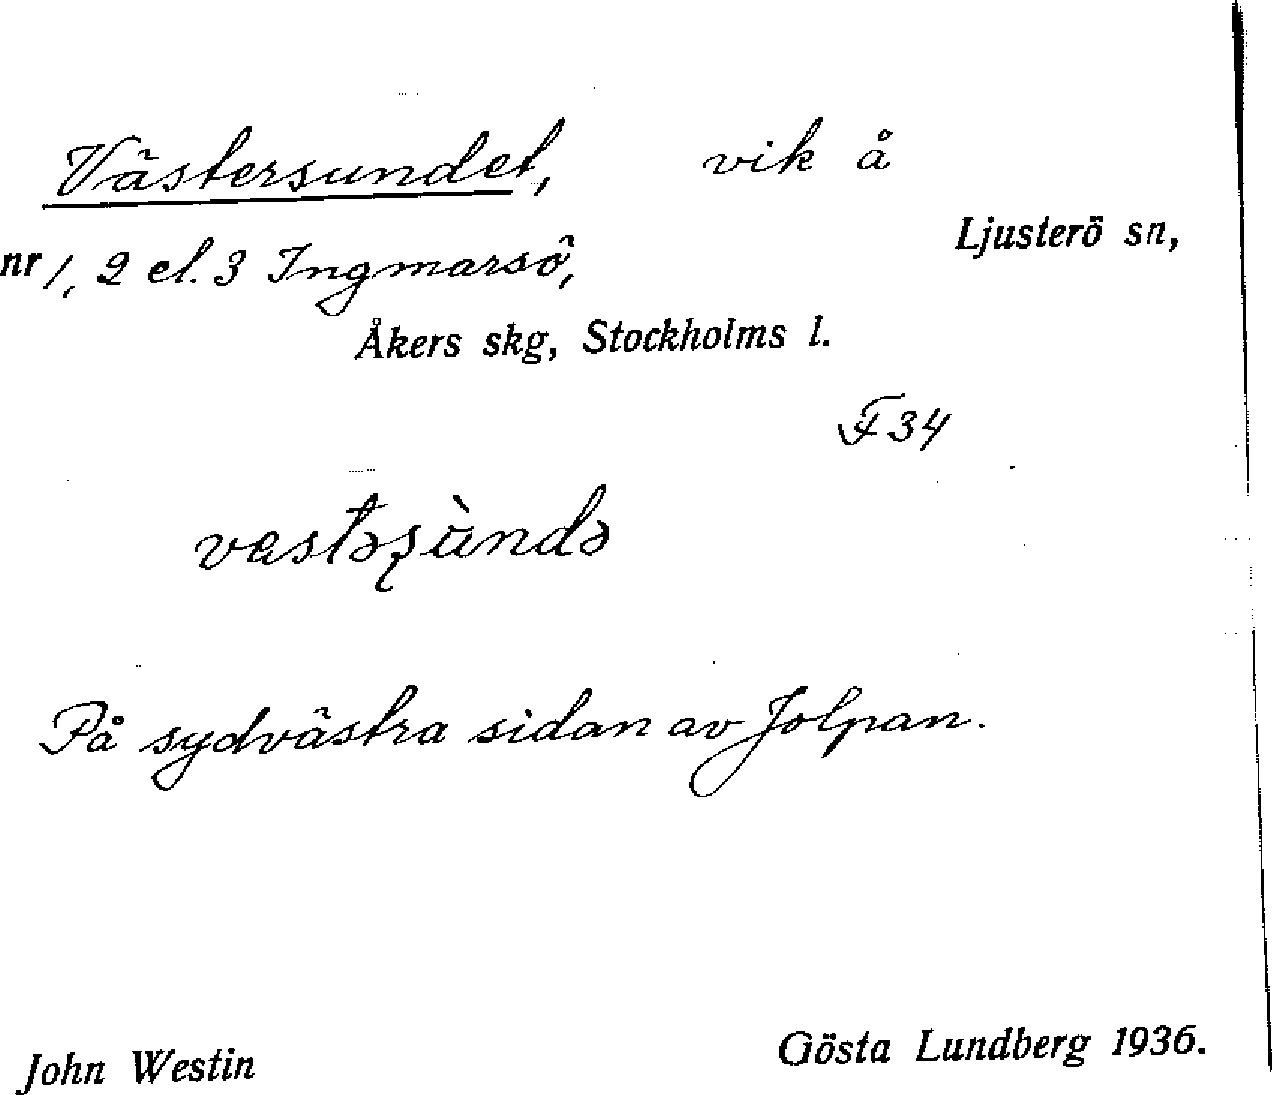 Västersundet, vik å
Ljusterö sn,
nr 1, 2 el. 3 Ingmarsö,
Åkers skg, Stockholms l.
F 34
På sydvästra sidan av Jolpan.
John Westin
Gösta Lundberg 1936.